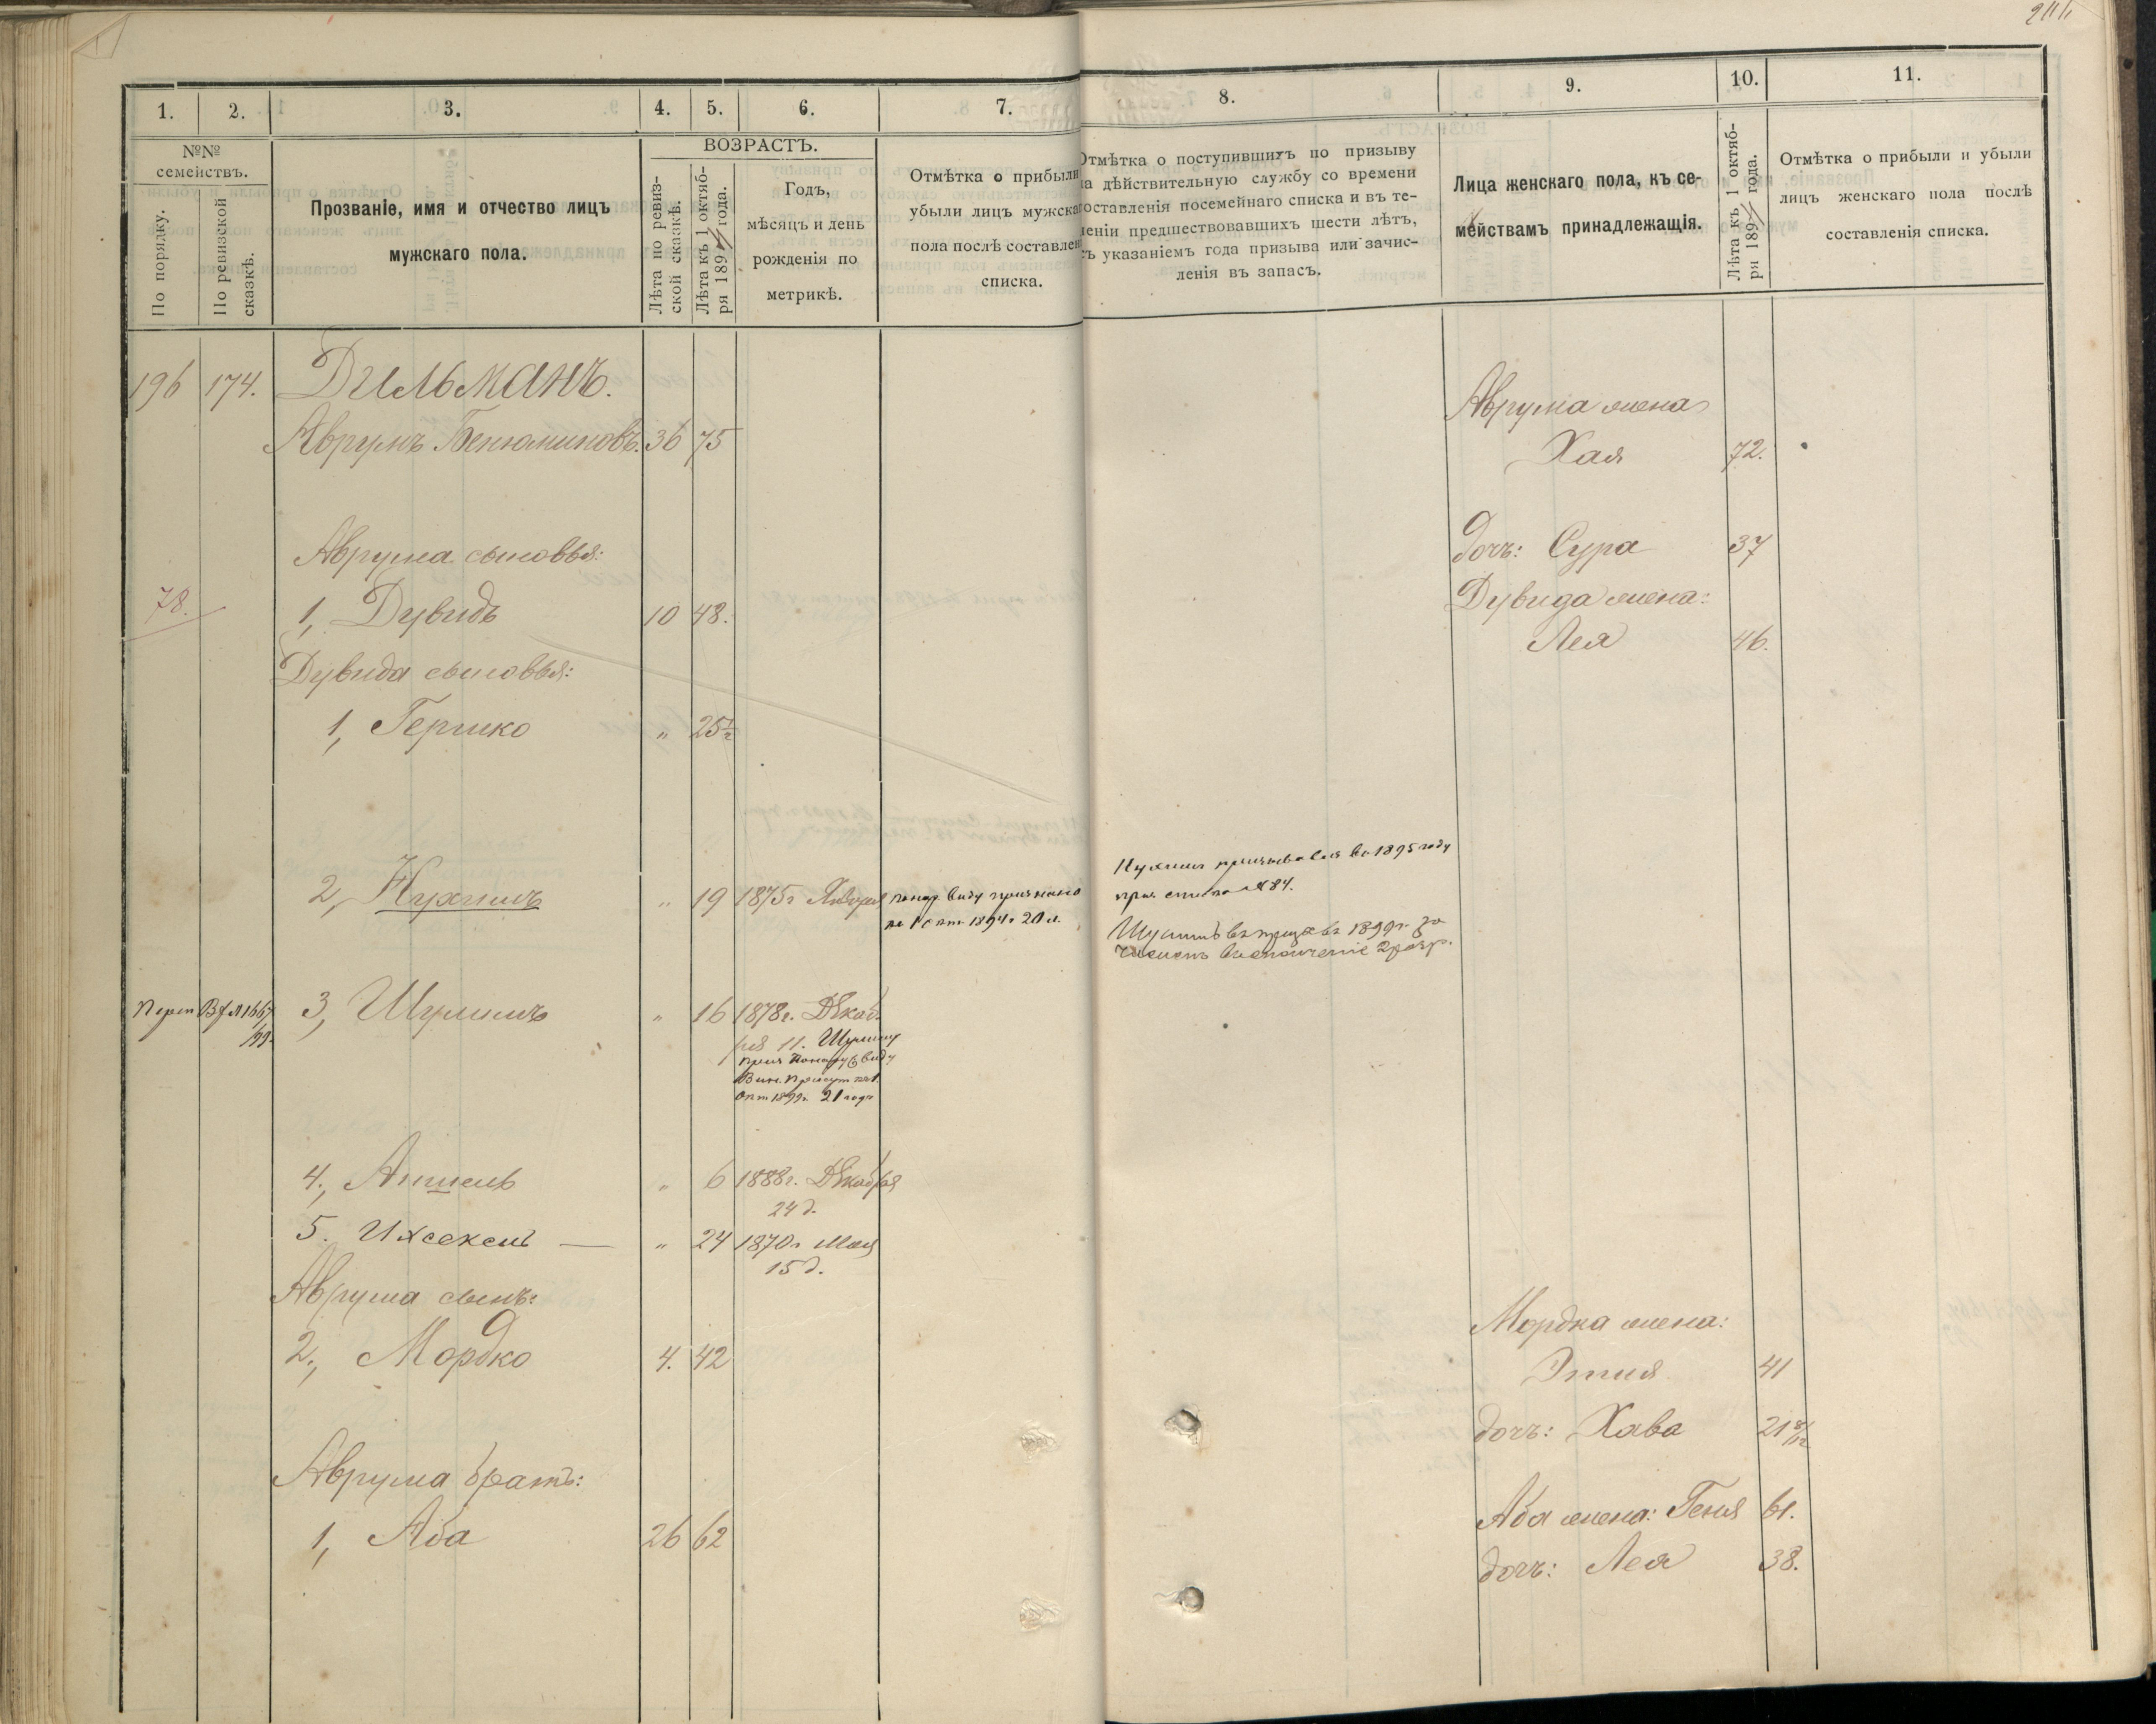 1.
2.
3.
4.
5.
6.
7.
8.
9.
10.
11.
№№ семействъ.
По порядку.
По ревизской сказкѣ.
Прозваніе, имя и отчество лицъ
мужскаго пола.
ВОЗРАСТЪ.
Лѣта по ревиз-
ской сказкѣ.
Лѣта къ 1 октяб-
ря 1894 года.
Годъ,
мѣсяцъ и день
рожденія по
метрикѣ.
Отмѣтка о прибыли
убыли лицъ мужска
пола послѣ составлен
списка.
Отмѣтка о поступившихъ по призыву
на дѣйствительную службу со времени
составленія посемейнаго списка и въ те-
ченіи предшествовавшихъ шести лѣтъ,
съ указаніемъ года призыва или зачис-
ленія въ запасъ.
Лица женскаго пола, къ се-
мействамъ принадлежащія.
Лѣта къ 1 октяб-
ря 1894 года.
Отмѣтка о прибыли и убыли
лицъ женскаго пола послѣ
составленія списка.
196 174. Дильманъ.
Аврумъ Бенюминовъ. 36 75
Аврума жена
Хая 72.
Аврума сыновья:
дочь: Сура 37
78.
1, Дувидъ 10 48.
Дувида жена:
Лея 46.
Дувида сыновья:
1, Гершко " 25
2, Нухимъ " 19 1875г Января
по нар. виду признано
на 1 окт. 1894г 20 л.
Нухимъ призывался въ 1895 году
приз. списка №84.
Шулимъ въ призывъ 1899г. за
численъ въ ополченіе 2 разр.
3, Шулимъ " 16 1878г. Декаб
ря 11. Шулиму
Прис к 1
окт 1899г. 21 годъ
4, Аншель " 6 1888г. Декабря
24 д.
5. Ихсекель — " 24 1870г Мая
15 д.
Аврума сынъ:
2, Мордко 4. 42
Мордка жена:
Этля 41
дочь: Хава 21 8/12
Аврума братъ:
1, Аба 26 62
Аба жена: Геня 61.
дочь: Лея 38.